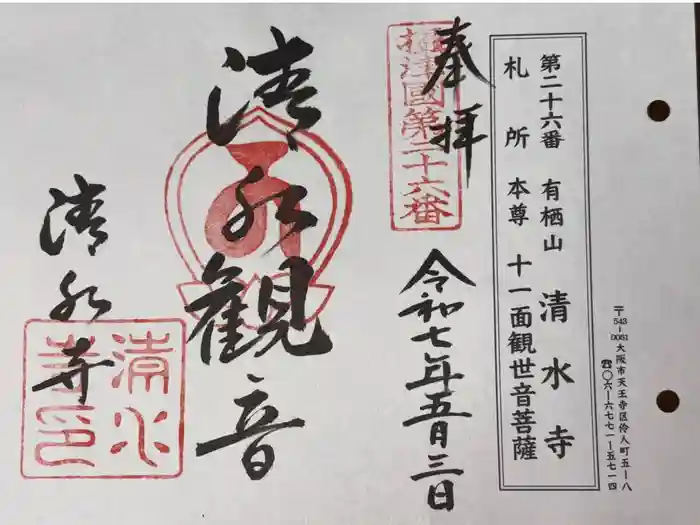 第二十六番 有栖山 清水寺
札所本尊 十一面観世音菩薩
〒543-0051 大阪市天王寺区伶人町五ー八
☎〇六ー六七七一ー五七一四
奉拝
摂津國第二十六番
令和七年五月三日
清水観音
清水寺
清水寺印